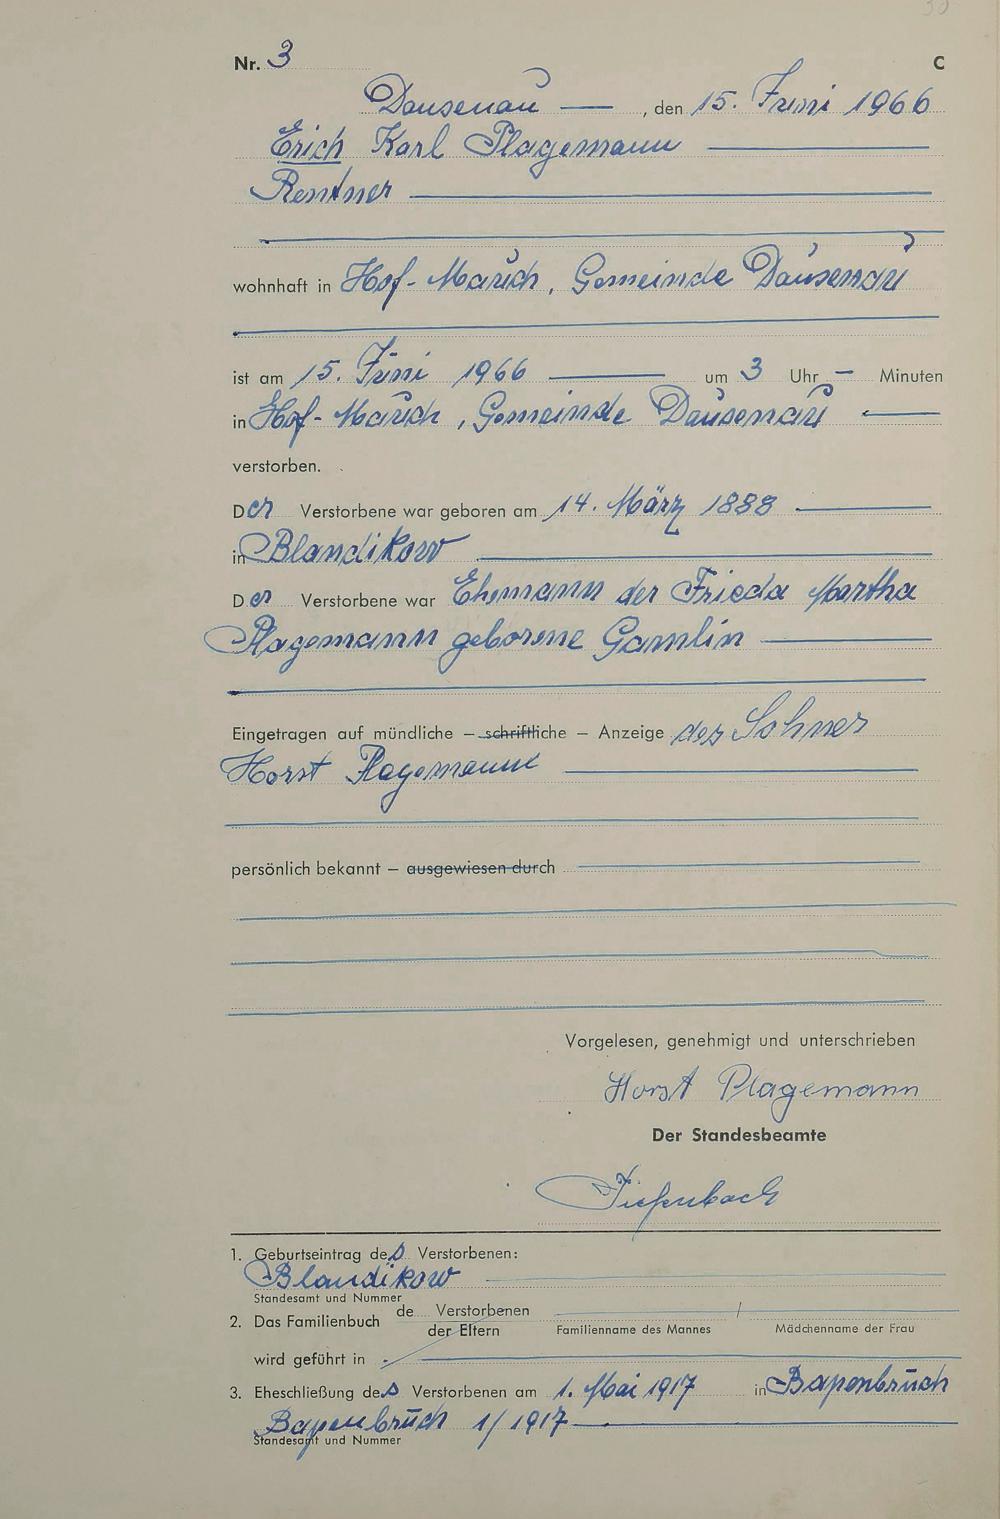 30
Nr. 3 C
Dausenau — , den 15. Juni 1966
Erich Karl Plagemann
Rentner
wohnhaft in Hof-Mauch, Gemeinde Dausenau
ist am 15. Juni 1966 um 3 Uhr — Minuten
in Hof-Mauch, Gemeinde Dausenau
verstorben.
Der Verstorbene war geboren am 14. März 1888
in Blandikow
Der Verstorbene war Ehemann der Frieda Martha
Plagemann geborene Gamlin
Eingetragen auf mündliche – schriftliche – Anzeige des Sohnes
Horst Plagemann
persönlich bekannt – ausgewiesen durch
Vorgelesen, genehmigt und unterschrieben
Horst Plagemann
Der Standesbeamte
Tiefenbach
1. Geburtseintrag des Verstorbenen:
Blandikow
Standesamt und Nummer
2. Das Familienbuch de Verstorbenen /
der Eltern Familienname des Mannes Mädchenname der Frau
wird geführt in
3. Eheschließung des Verstorbenen am 1. Mai 1917 in Bapenbruch
Bapenbruch 1/1917
Standesamt und Nummer